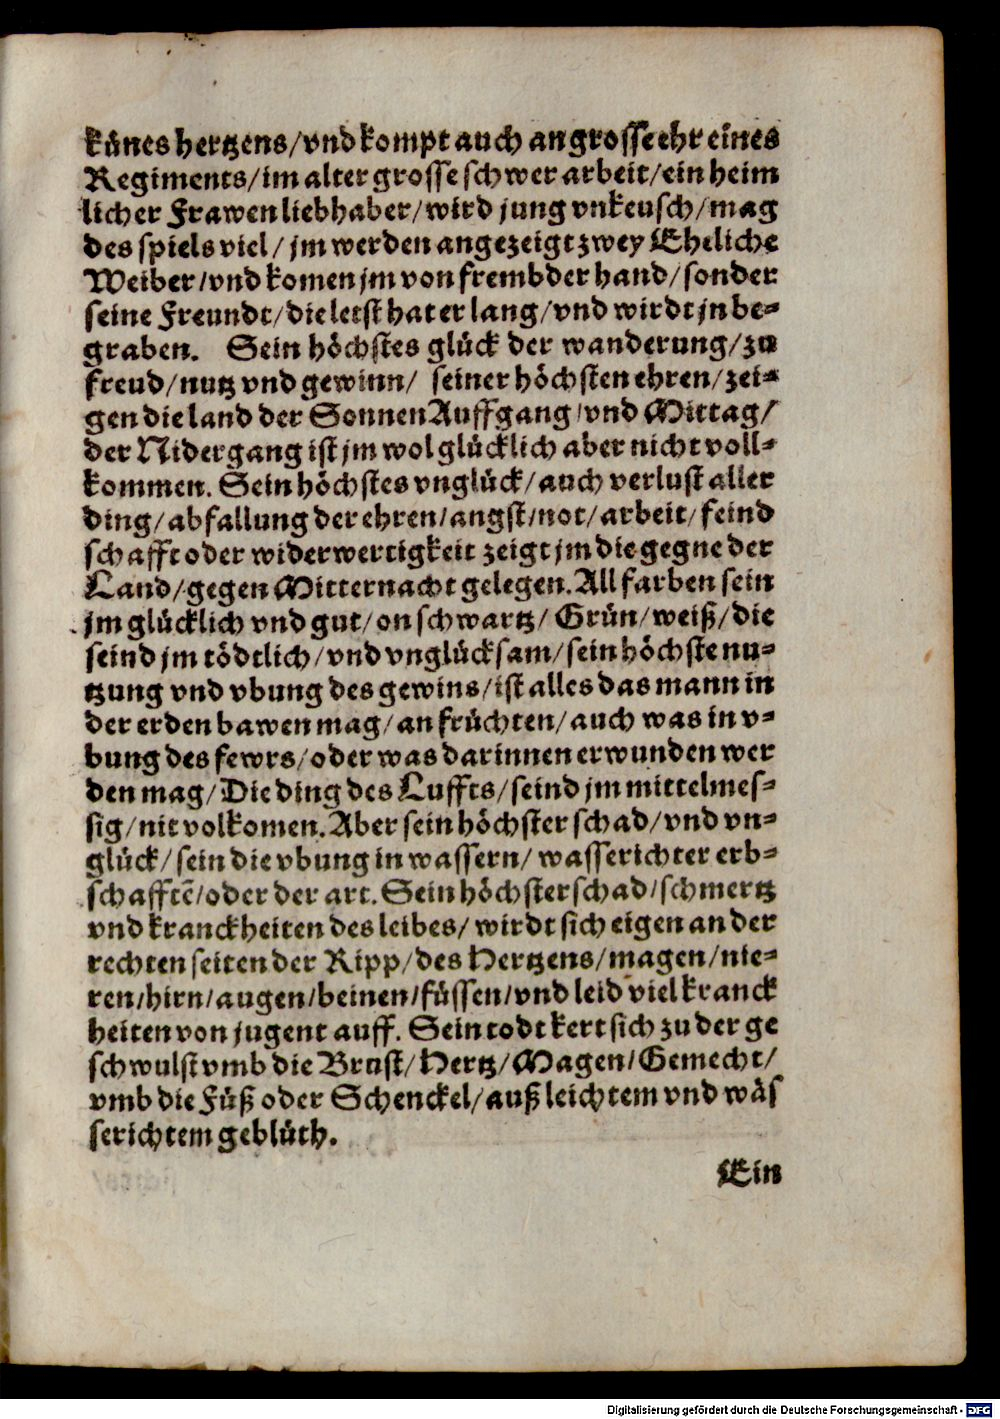 künes hertzens/vnd kompt auch an grosse ehr eines
Regiments/im alter grosse schwer arbeit/ein heim
licher Frawen liebhaber/wird jung vnkeusch/mag
des spiels viel/ jm werden angezeigt zwey Eheliche
Weiber/vnd komen jm von frembder hand/sonder
seine Freundt/die letst hat er lang/vnd wirdt jn be⸗
graben. Sein höchstes glück der wanderung/zu
freud/nutz vnd gewinn/ seiner höchsten ehren/zei⸗
gen die land der Sonnen Auffgang/vnd Mittag/
der Nidergang ist jm wol glücklich aber nicht voll⸗
kommen. Sein höchstes vnglück/auch verlust aller
ding/abfallung der ehren/angst/not/arbeit/feind
schafft oder widerwertigkeit zeigt jm die gegne der
Land/gegen Mitternacht gelegen. All farben sein
jm glücklich vnd gut/on schwartz/ Grün/weiß/die
seind jm tödtlich/vnd vnglücksam/sein höchste nu⸗
tzung vnd vbung des gewins/ist alles das mann in
der erden bawen mag/an früchten/auch was in v⸗
bung des fewrs/oder was darinnen erwunden wer
den mag/Die ding des Luffts/seind jm mittelmes⸗
sig/nit volkomen. Aber sein höchster schad/vnd vn⸗
glück/sein die vbung in wassern/wasserichter erb⸗
schafftẽ/oder der art. Sein höchster schad/schmertz
vnd kranckheiten des leibes/ wirdt sich eigen an der
rechten seiten der Ripp/des Hertzens/magen/nie⸗
ren/hirn/augen/beinen/füssen/vnd leid viel kranck
heiten von jugent auff. Sein todt kert sich zu der ge
schwulst vmb die Brust/Hertz/Magen/Gemecht/
vmb die Füß oder Schenckel/auß leichtem vnd wäs
serichtem geblüth.
Ein
Digitalisierung gefördert durch die Deutsche Forschungsgemeinschaft - DFG